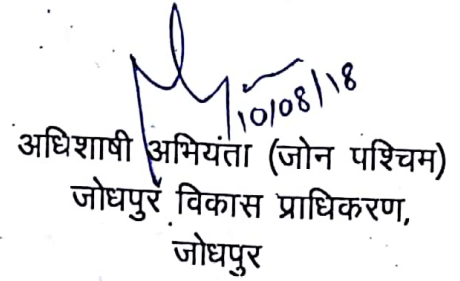 10/08/18
अधिशाषी अभियंता (जोन पश्चिम)
जोधपुर विकास प्राधिकरण,
जोधपुर